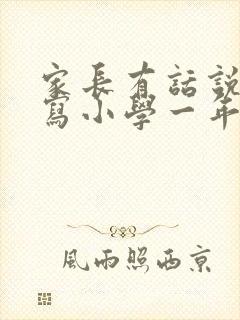 家長有話說
寫小學一年
風雨照西京